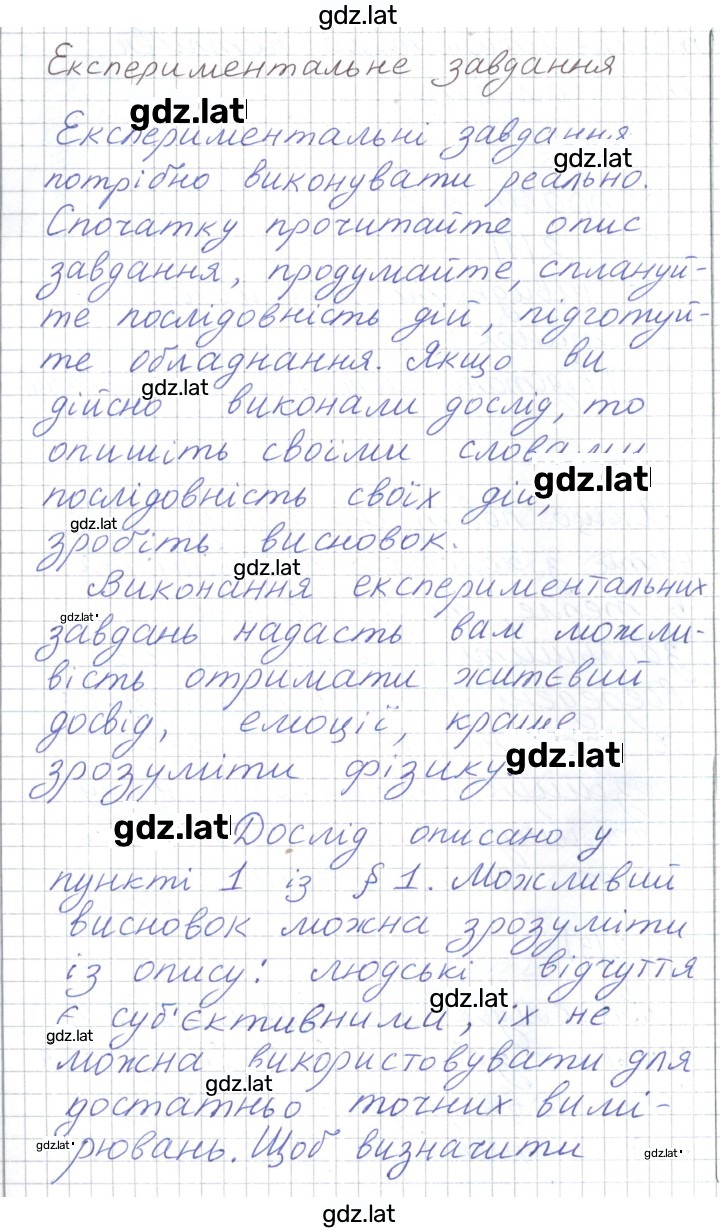 gdz.lat
Експериментальне завдання
gdz.lat
Експериментальні завдання
gdz.lat
потрібно виконувати реально.
Спочатку прочитайте опис
завдання, продумайте, сплануй-
те послідовність дій, підготуй-
те обладнання. Якщо ви
gdz.lat
дійсно виконали дослід, то
опишіть своїми словами
gdz.lat
послідовність своїх дій,
gdz.lat
зробіть висновок.
gdz.lat
Виконання експериментальних
gdz.lat
завдань надасть вам можли-
вість отримати життєвий
досвід, емоції, краще
gdz.lat
зрозуміти фізику.
gdz.lat Дослід описано у
пункті 1 із § 1. Можливий
висновок можна зрозуміти
із опису: людські відчуття
gdz.lat
є суб'єктивними, їх не
gdz.lat
можна використовувати для
gdz.lat
достатньо точних вимі-
gdz.lat рювань. Щоб визначити gdz.lat
gdz.lat